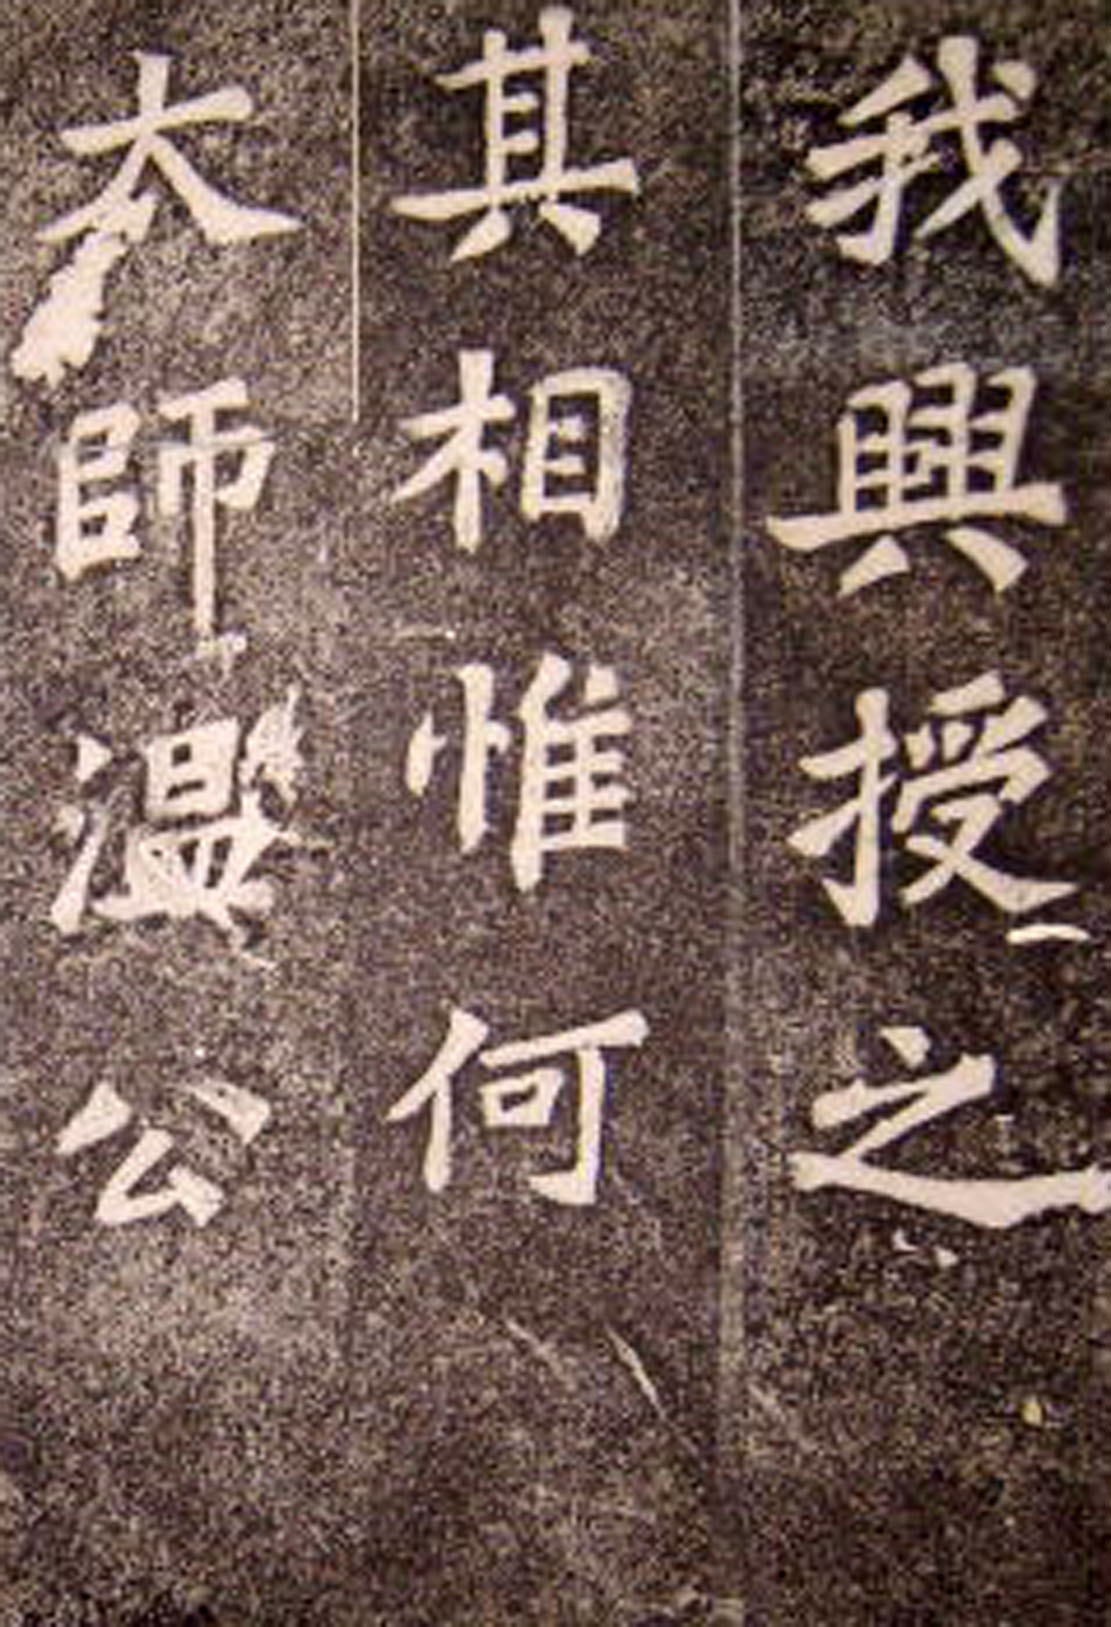 我興授之
其相惟何
太師温公